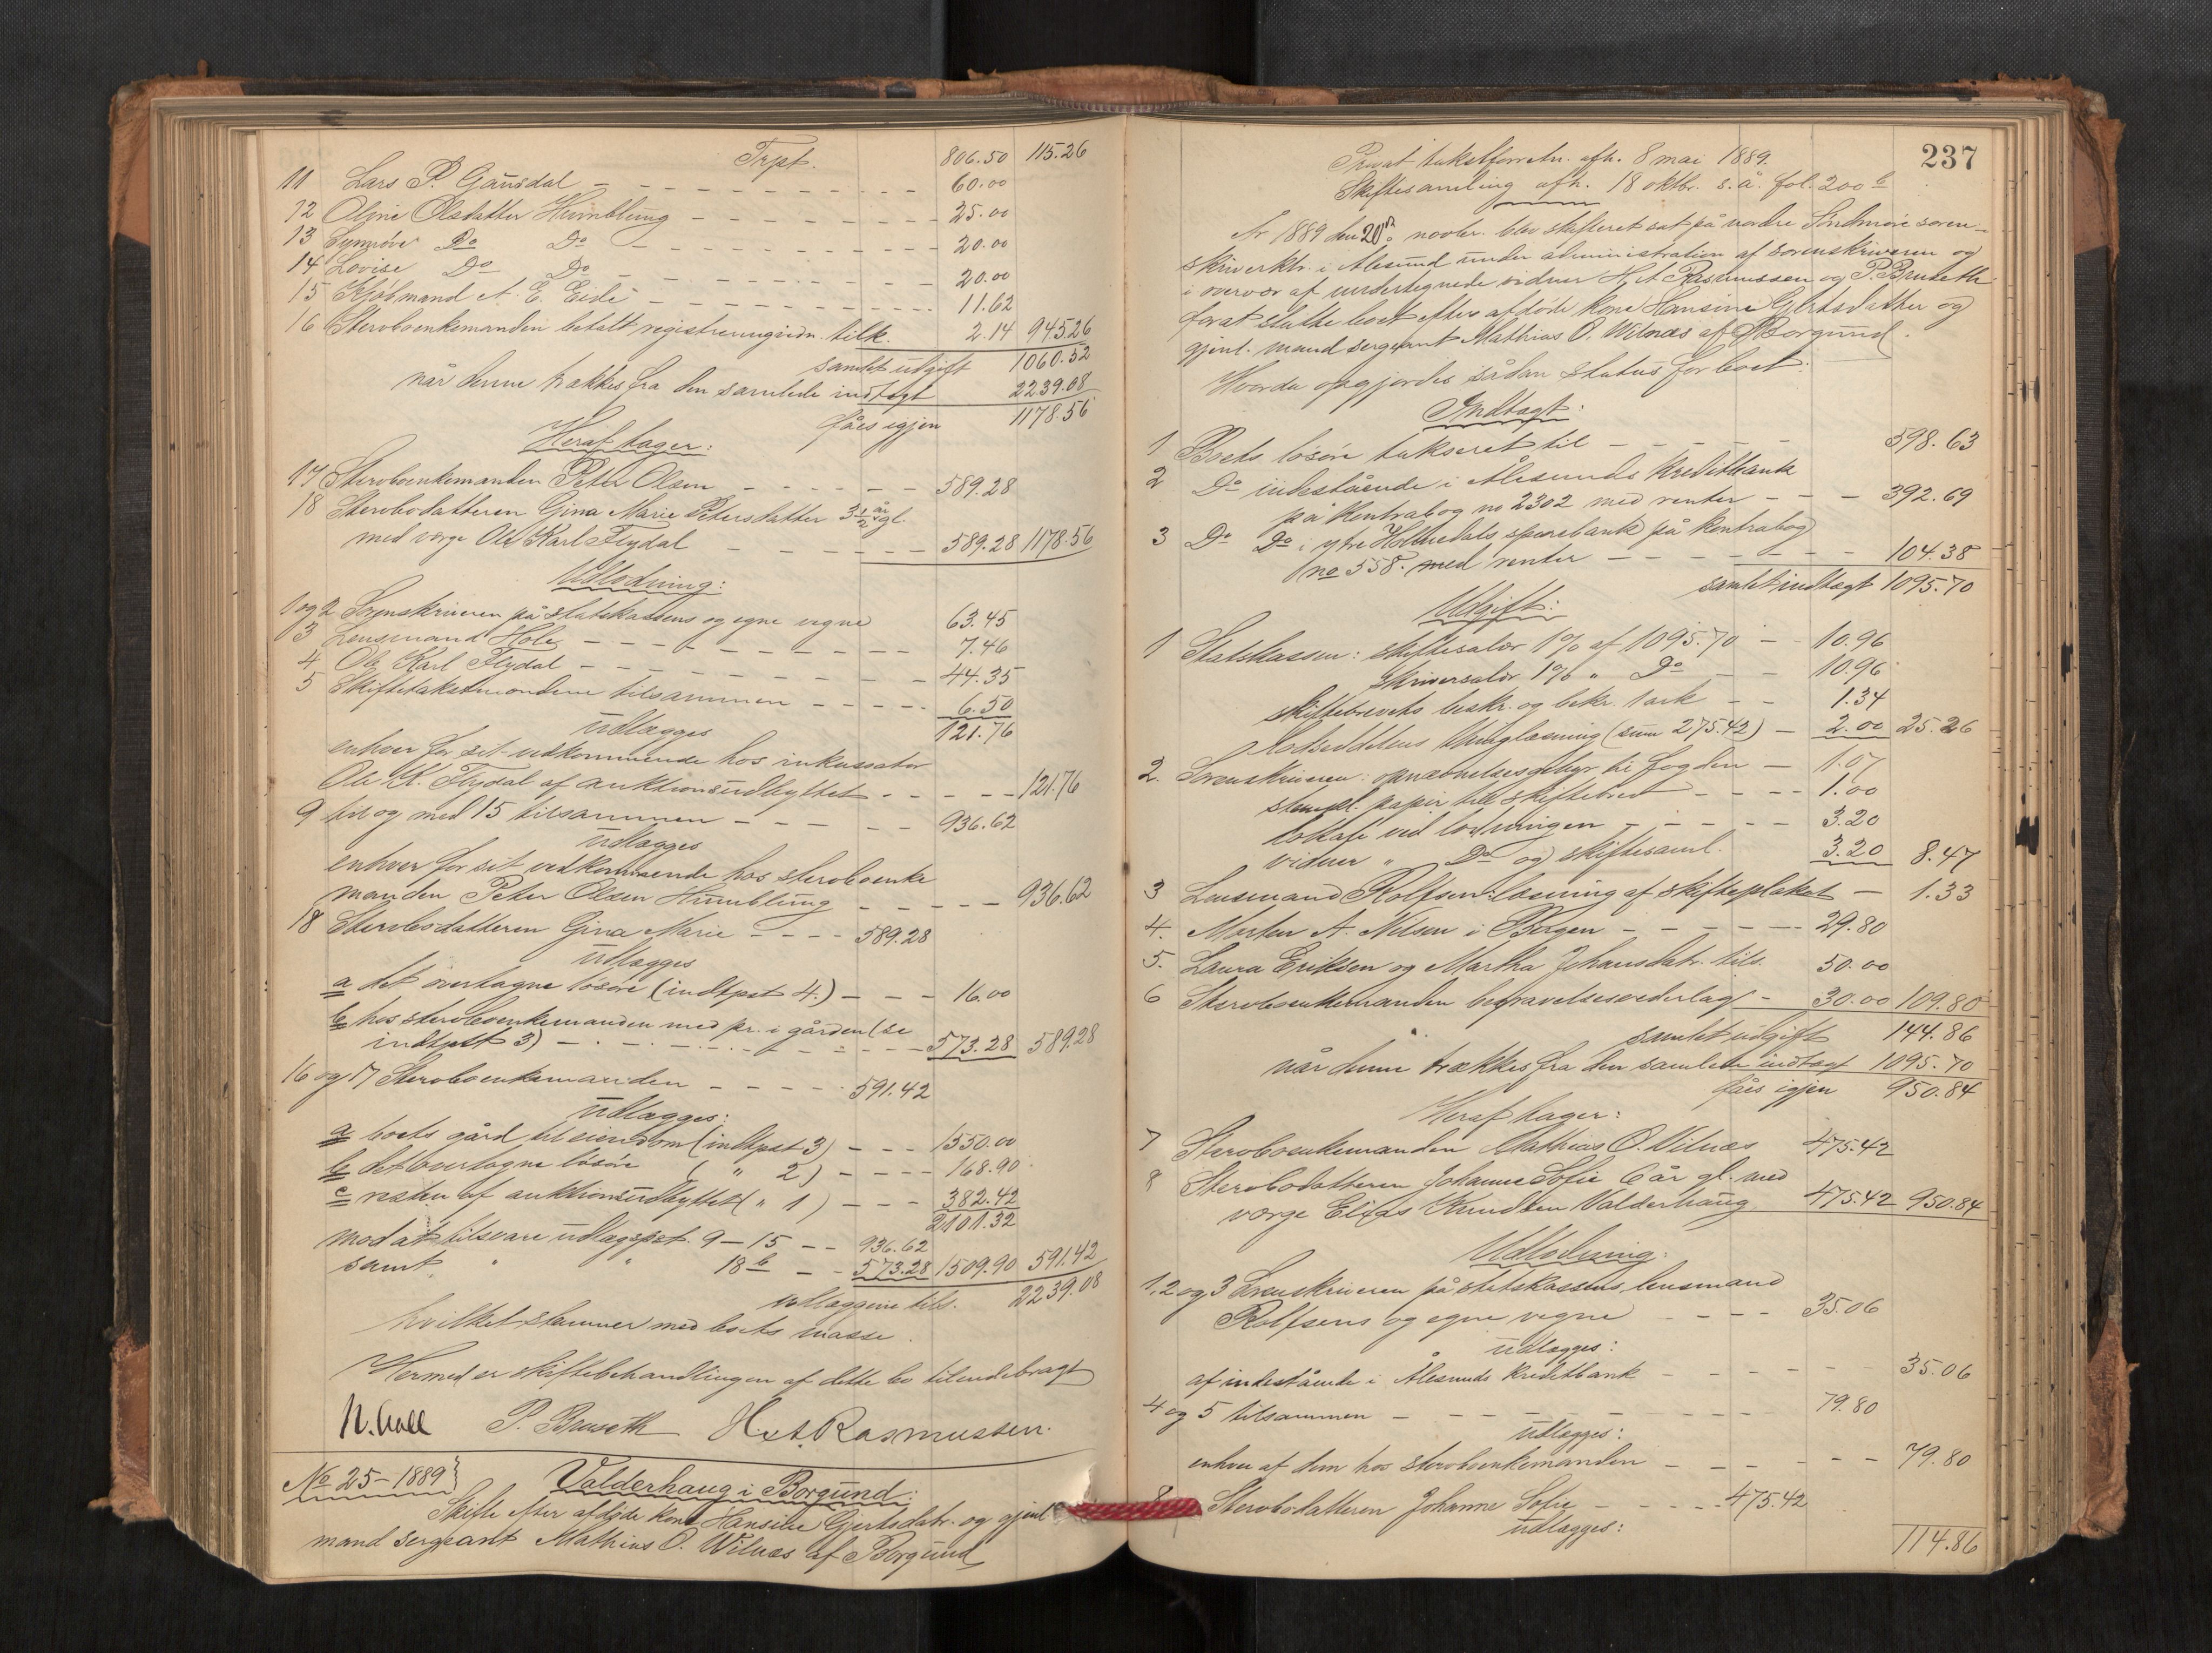 Trpt. 806.50 115.26
11 Lars P. Gausdal - - - 60.00
12 Oline Olsdatter Humblung - - - 25.00
13 Synnöve Do Do - - - 20.00
14 Lovise Do Do - - - 20.00
15 Kjöbmand A. E. Eide - - - 11.62
16 Sterboenkemanden betalt registreringsvidn. tilk. 2.14 945.26
samlet udgift 1060.52
når denne trækkes fra den samlede indtægt 2239.08
fåes igjen 1178.56
Heraf tager:
17 Sterboenkemanden Peter Olsen - - - 589.28
18 Sterbodatteren Gina Marie Petersdatter 3½ år gl.
med verge Ole Karl Flydal - - - 589.28 1178.56
Udlodning:
1 og 2 Sorenskriveren på statskassens og egne vegne 63.45
3 Lensmand Hole - - - 7.46
4 Ole Karl Flydal - - - 44.35
5 Skiftetakstmændene tilsammen - - - 6.50
udlægges 121.76
enhver for sit vedkommende hos inkassator
Ole K. Flydal af auktionsudbyttet - - - 121.76
9 til og med 15 tilsammen - - - 936.62
udlægges
enhver for sit vedkommende hos sterboenke
manden Peter Olsen Humblung - - - 936.62
18 Sterbodatteren Gina Marie - - - 589.28
udlægges
a det overtagne lösöre (indtpst 4.) - - - 16.00
b hos sterboenkemanden med pr. i gården (se
indtpst 3) - - - 573.28 589.28
16 og 17 Sterboenkemanden - - - 591.42
udlægges:
a boets gård til eiendom (indtpst 3) - - - 1550.00
b det overtagne lösöre ( " 2) - - - 168.90
c resten af auktionsudbyttet ( " 1) - - - 382.42
2101.32
mod at tilsvare udlægspst. 9 - 15 - - 936.62
samt " " 18 b - - 573.28 1509.90 591.42
udlæggene tils. 2239.08
hvilket stemmer med boets masse.
Hermed er skiftebehandlingen af dette bo tilendebragt
P. Bruseth H. A. Rasmussen.
No 25 - 1889 Valderhaug i Borgund:
Skifte efter afdöde kone Hansine Gjertsdatr. og gjenl
mand sergeant Mathias O. Wilnæs af Borgund
237
Privat takstforretn. afh. 8 mai 1889.
Skiftesamling afh. 18 oktbr. s. å. fol. 200 b
År 1889 den 20de novbr. blev skifteret sat på nordre Söndmöre soren-
skriverktr. i Ålesund under administration af sorenskriveren og
i overvær af undertegnede vidner H. A. Rasmussen og P. Bruseth
forat slutte boet efter afdöde kone Hansine Gjertsdatter og
gjenl. mand sergeant Mathias O. Wilnæs af Borgund.
Hvorda opgjordes sådan status for boet:
Indtægt:
1 Boets lösöre takseret til - - - 598.63
2 Do indestående i Ålesunds kreditbank
på kontrabog no 2302 med renter - - - 392.69
3 Do Do i ytre Holmedals sparebank på kontrabog
no 558. med renter - - - 104.38
samlet indtægt 1095.70
Udgift:
1 Statskassen: skiftesalær 1% af 1095.70 - - 10.96
Skriversalær 1% " Do - - 10.96
skiftebrevets beskr. og bekr. 1 ark - - 1.34
thinglæsning (sum 275.42) - 2.00 25.26
2. Sorenskriveren: opnævnelsesgebyr til fogden - 1.07
stempl. papir till skiftebrev - - - 1.00
lokale ved lodningen - - - 3.20
vidner " Do og skiftesaml. 3.20 8.47
3 Lensmand Rolfsen: læsning af skifteplakat - 1.33
4. Morten A. Nilsen i Borgen - - - 29.80
5. Laura Eriksen og Martha Johansdatr. tils. 50.00
6 Sterboenkemanden begravelsesvederlag - 30.00 109.80
samlet udgift 144.86
når denne trækkes fra den samlede indtægt 1095.70
fåes igjen 950.84
Heraf tager:
7 Sterboenkemanden Mathias O. Wilnæs 475.42
8 Sterbodatteren Johanne Sofie 6 år gl. med
værge Elias Knudsen Valderhaug 475.42 950.84
Udlodning:
1, 2 og 3 Sorenskriveren på statskassens, lensmand
Rolfsens og egne vegne - - - 35.06
udlægges:
af indestående i Ålesunds kreditbank - - - 35.06
4 og 5 tilsammen - - - 79.80
udlægges:
enhver af dem hos sterboenkemanden - - - 79.80
8 Sterbodatteren Johanne Sofie - - - 475.42
udlægges:
114.86